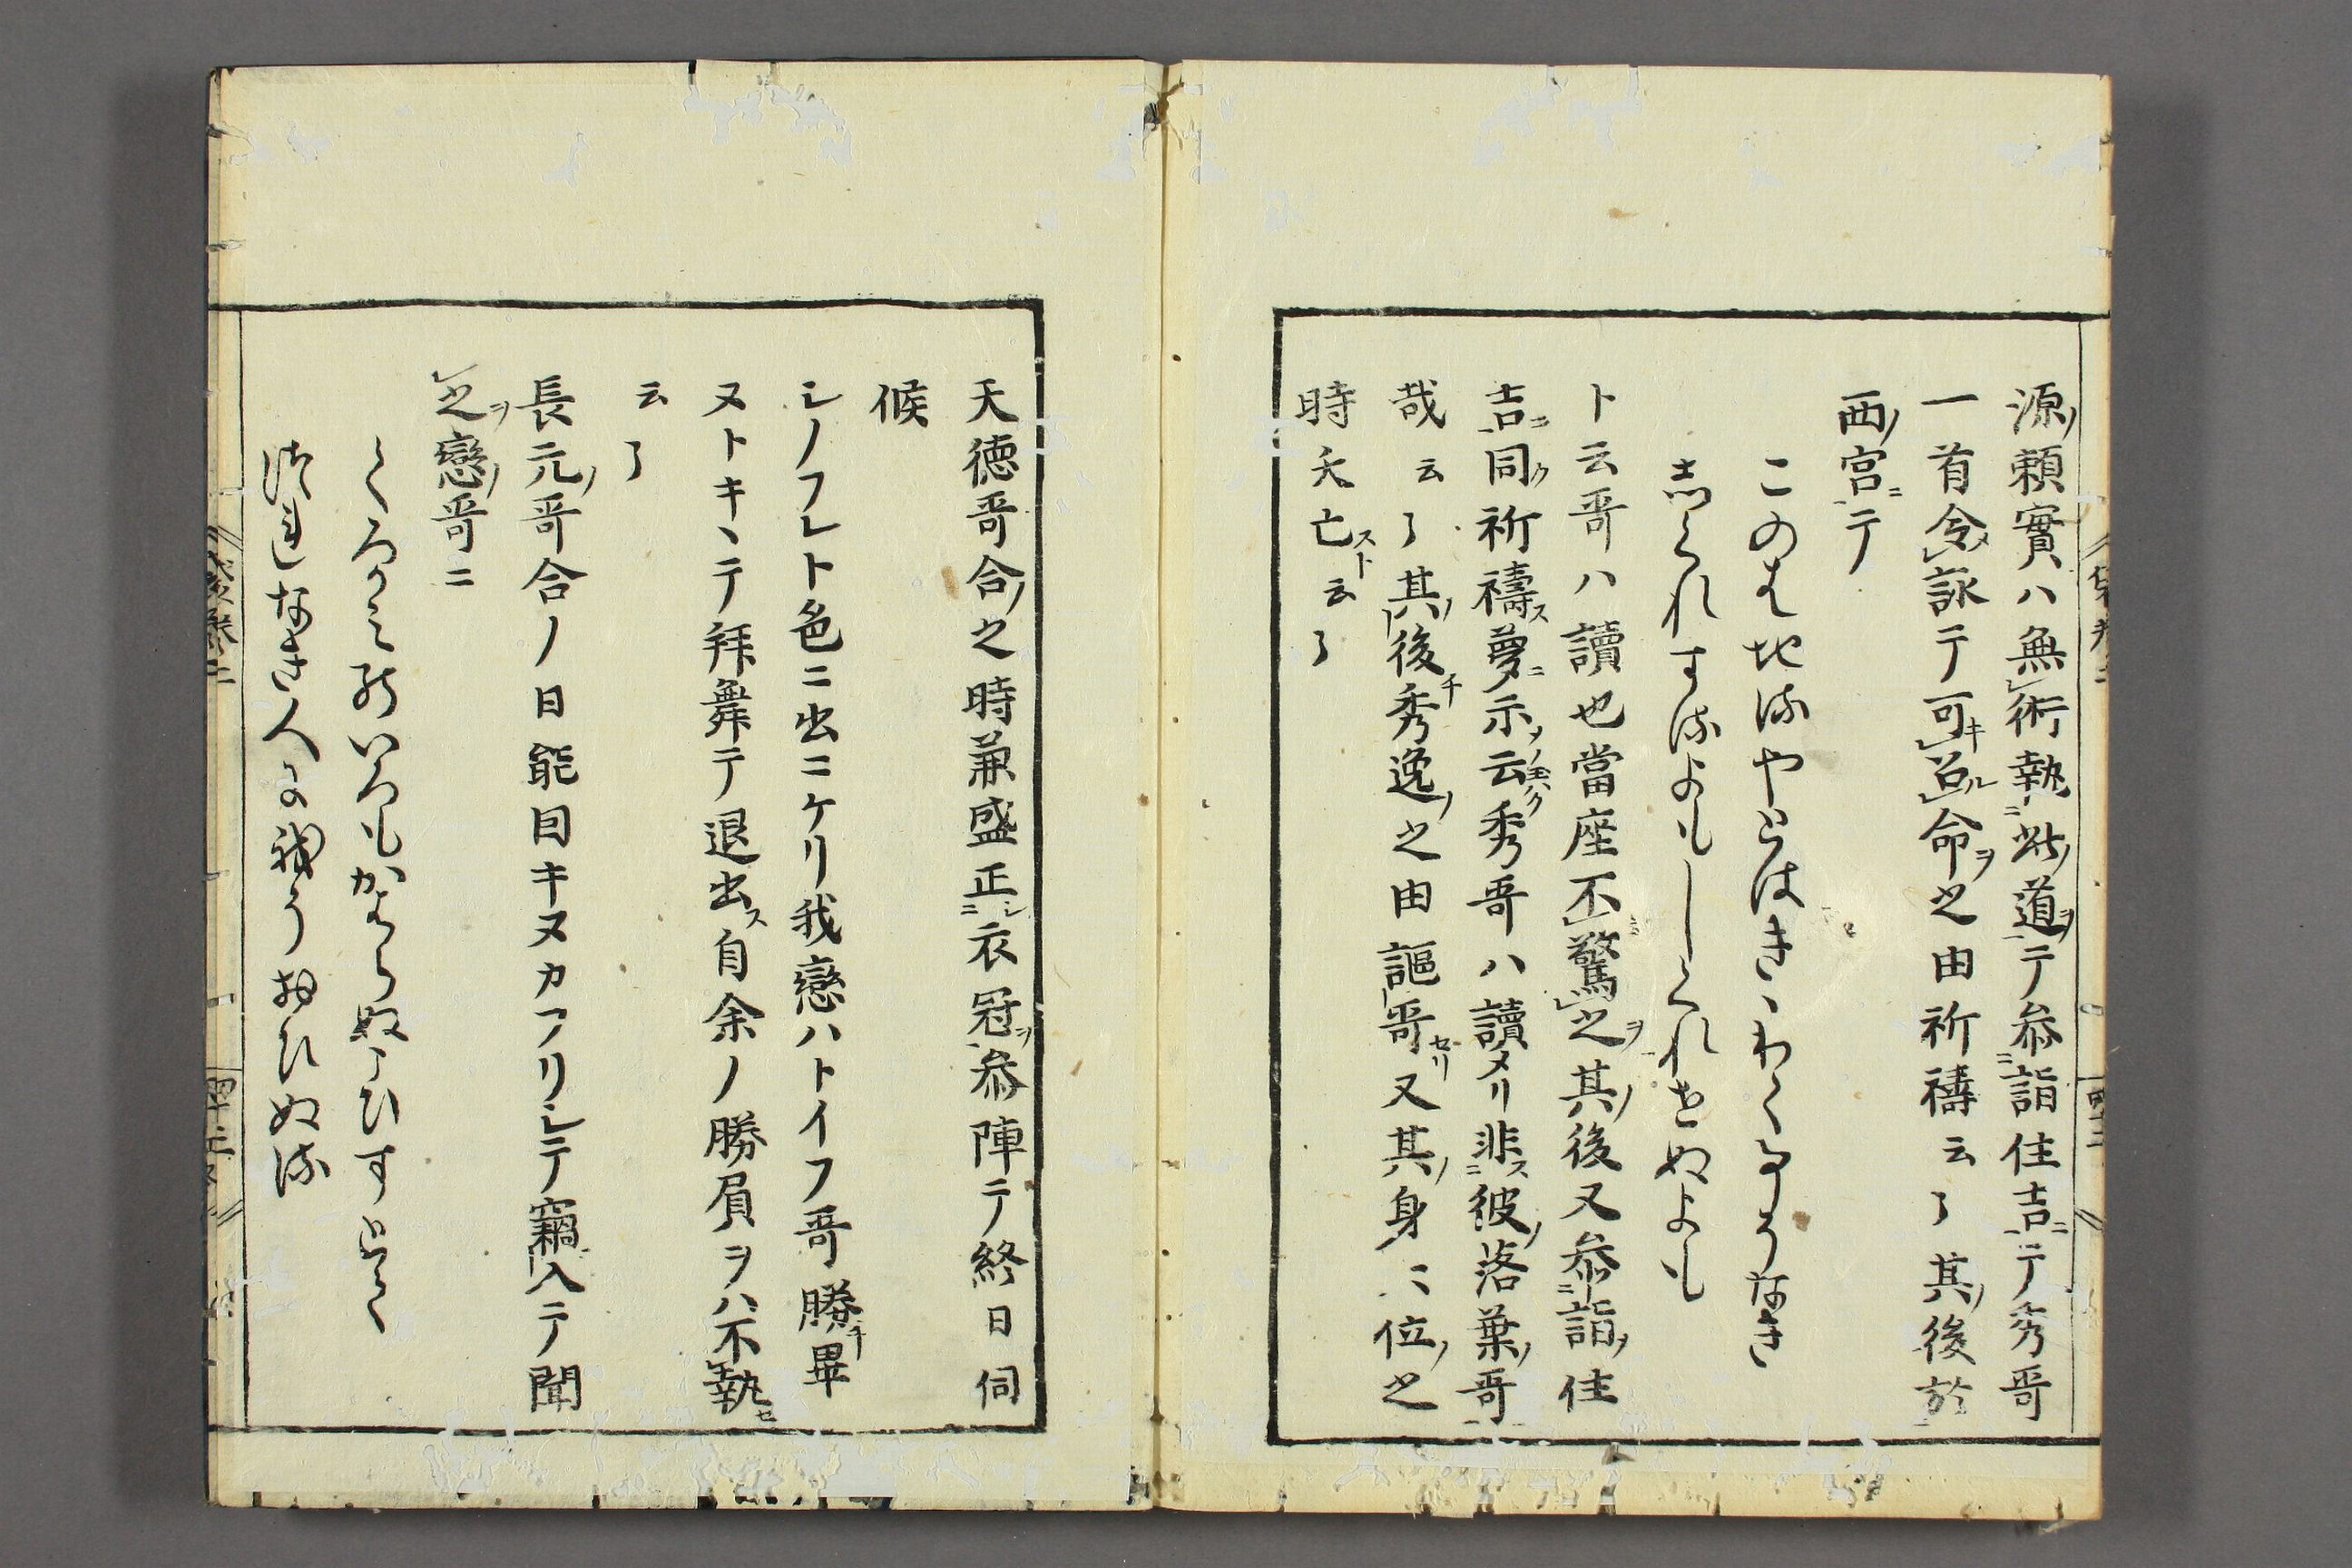 源頼實ハ無術執此道テ参詣住吉テ秀哥
一首令詠テ可召命之由祈禱云々其後於
西宮テ
このはちるやとはきゝわくことそなき
しくれするよもしくれせぬよも
ト云哥ハ讀也當座不驚之其後又参詣住
吉同祈禱夢示云秀哥ハ讀メリ非彼落葉哥
哉云々其後秀逸之由謳哥セリ又其身ハ位之
時夭亡スト云々
天徳哥合之時兼盛正衣冠参陣テ終日伺
候
シノフレト色ニ出ニケリ我戀ハトイフ哥勝畢
ヌトキヽテ拜舞テ退出ス自余ノ勝屓ヲハ不執セ
云々
長元哥合ノ日能因キヌカフリシテ竊入テ聞
之戀哥ニ
くろかみのいろもかはらぬこひすとて
つれなき人にわれそおひぬる